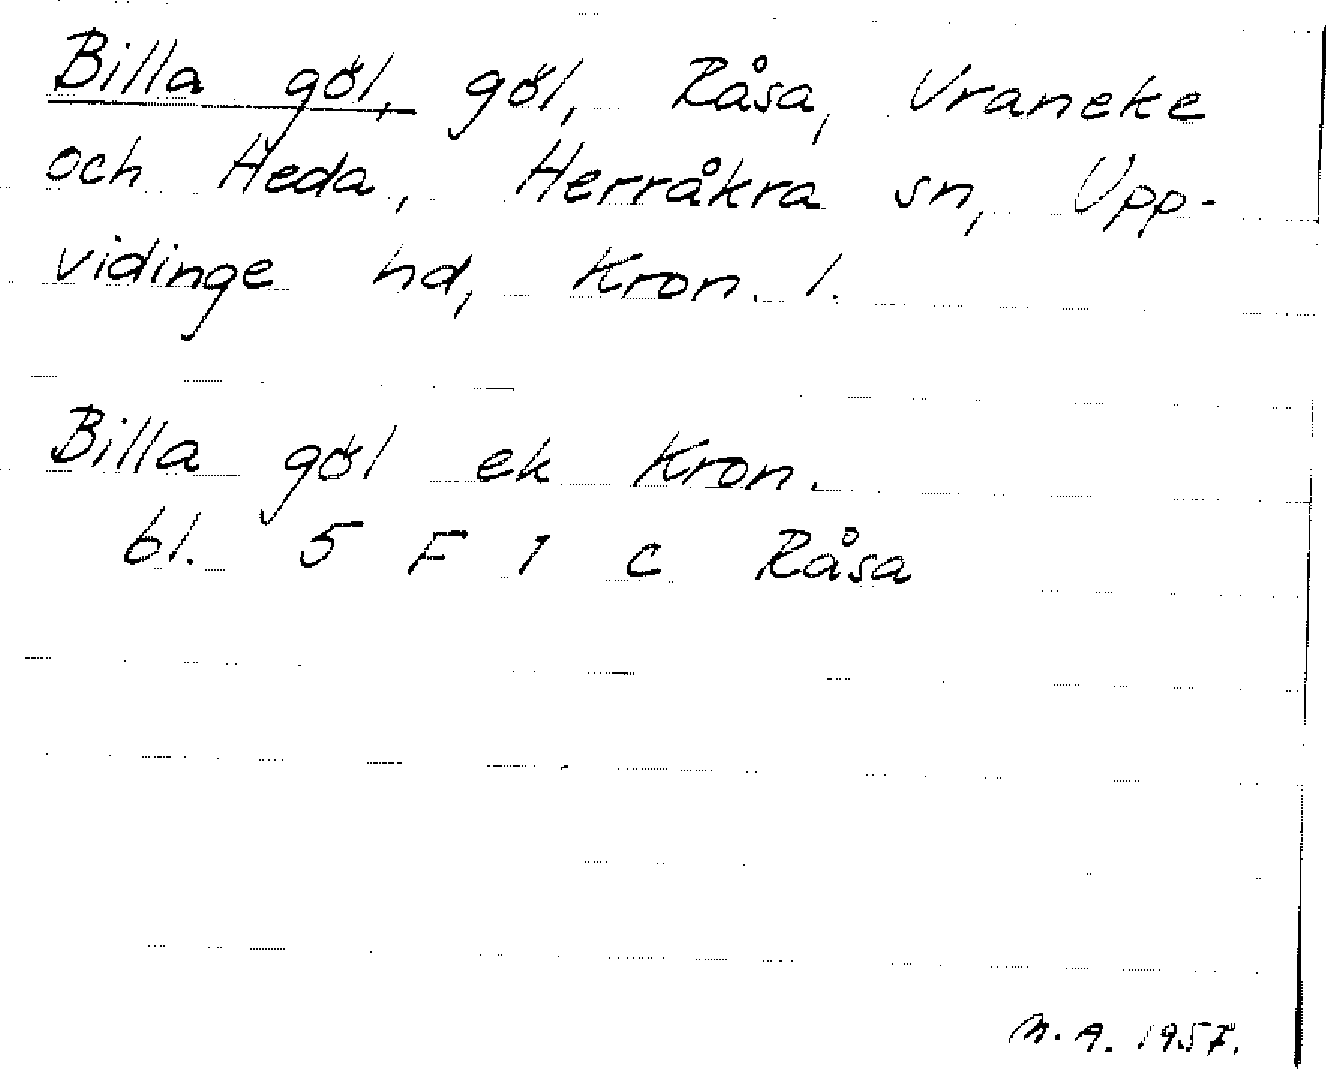 Billa göl, göl, Råsa, Vraneke
och Heda, Herråkra sn, Upp-
vidinge hd, Kron. l.
Billa göl ek Kron.
bl. 5 F 1 c Råsa
M. A. 1957.